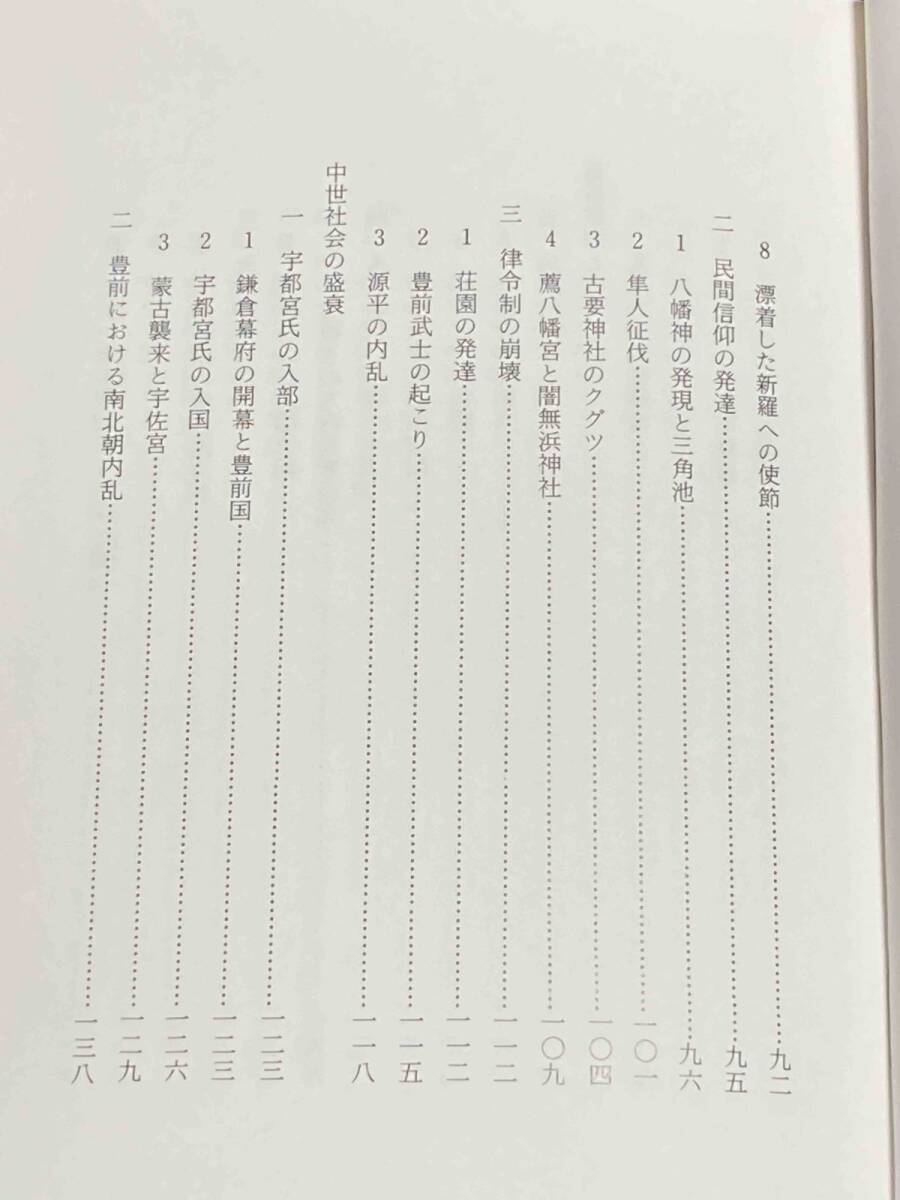 8　漂着した新羅への使節……………………………九二
二　民間信仰の発達……………………………九五
1　八幡神の発現と三角池……………………………九六
2　隼人征伐……………………………一〇一
3　古要神社のクグツ……………………………一〇四
4　薦八幡宮と闇無浜神社……………………………一〇九
三　律令制の崩壊……………………………一一二
1　荘園の発達……………………………一一二
2　豊前武士の起こり……………………………一一五
3　源平の内乱……………………………一一八
中世社会の盛衰
一　宇都宮氏の入部……………………………一二三
1　鎌倉幕府の開幕と豊前国……………………………一二三
2　宇都宮氏の入国……………………………一二六
3　蒙古襲来と宇佐宮……………………………一二九
二　豊前における南北朝内乱……………………………一三八